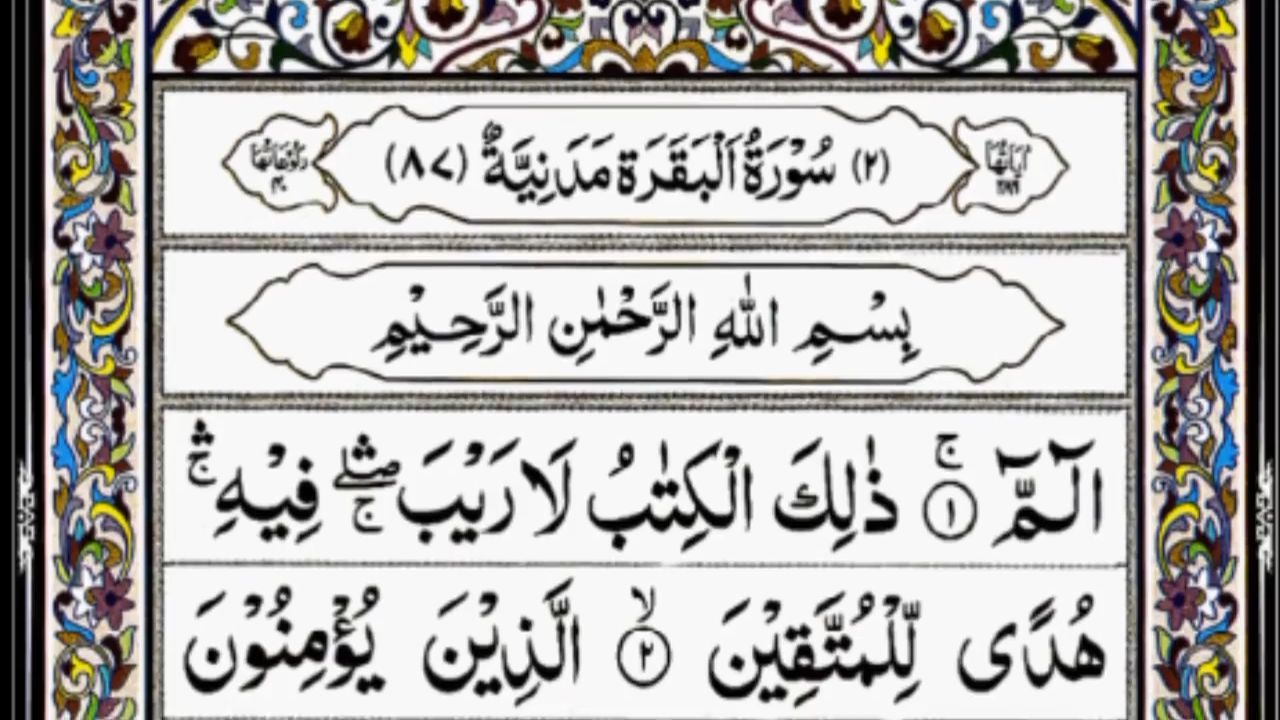 اٰيَاتُهَا ٢٨٦ (٢) سُوْرَةُ الْبَقَرَةِ مَدَنِيَّةٌ (٨٧) رُكُوْعَاتُهَا ٤٠
بِسْمِ اللّٰهِ الرَّحْمٰنِ الرَّحِيْمِ
الٓمّٓ ۚ ۝١ ذٰلِكَ الْكِتٰبُ لَا رَيْبَ ۛۖۚ فِيْهِ ۛۚ
هُدًى لِّلْمُتَّقِيْنَ ۙ ۝٢ الَّذِيْنَ يُؤْمِنُوْنَ